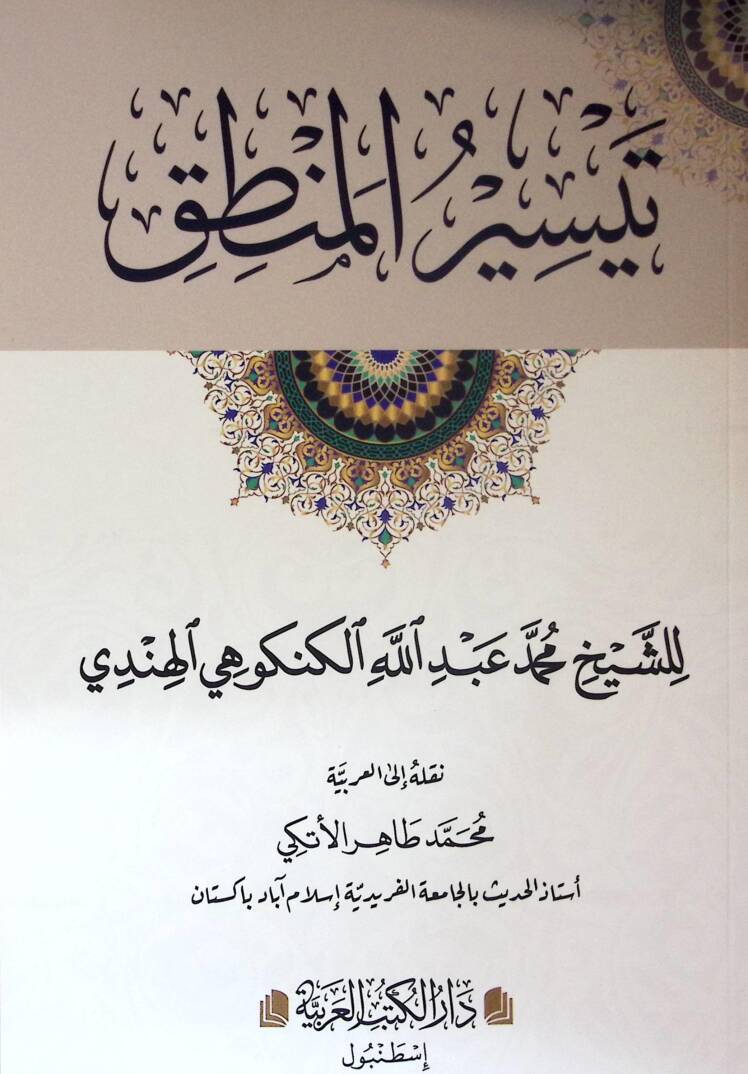 تَيْسِيْرُ المَنْطِقِ
لِلشَّيْخِ مُحَمَّد عَبْدِ ٱللَّهِ ٱلكنكوهي ٱلهِنْدِي
نقلهُ إلى العربيَّة
مُحَمَّد طَاهِر الأتكِي
أستاذ الحديث بالجامعة الفريديّة إسلام آباد باكستان
دَارُ الكُتُبِ العَرَبِيَّة
إِسْطَنْبُول